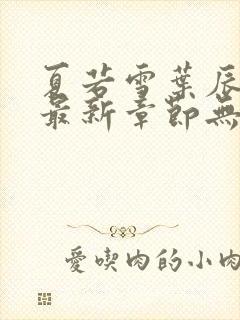 夏若雪葉辰
最新章節無
愛喫肉的小肉